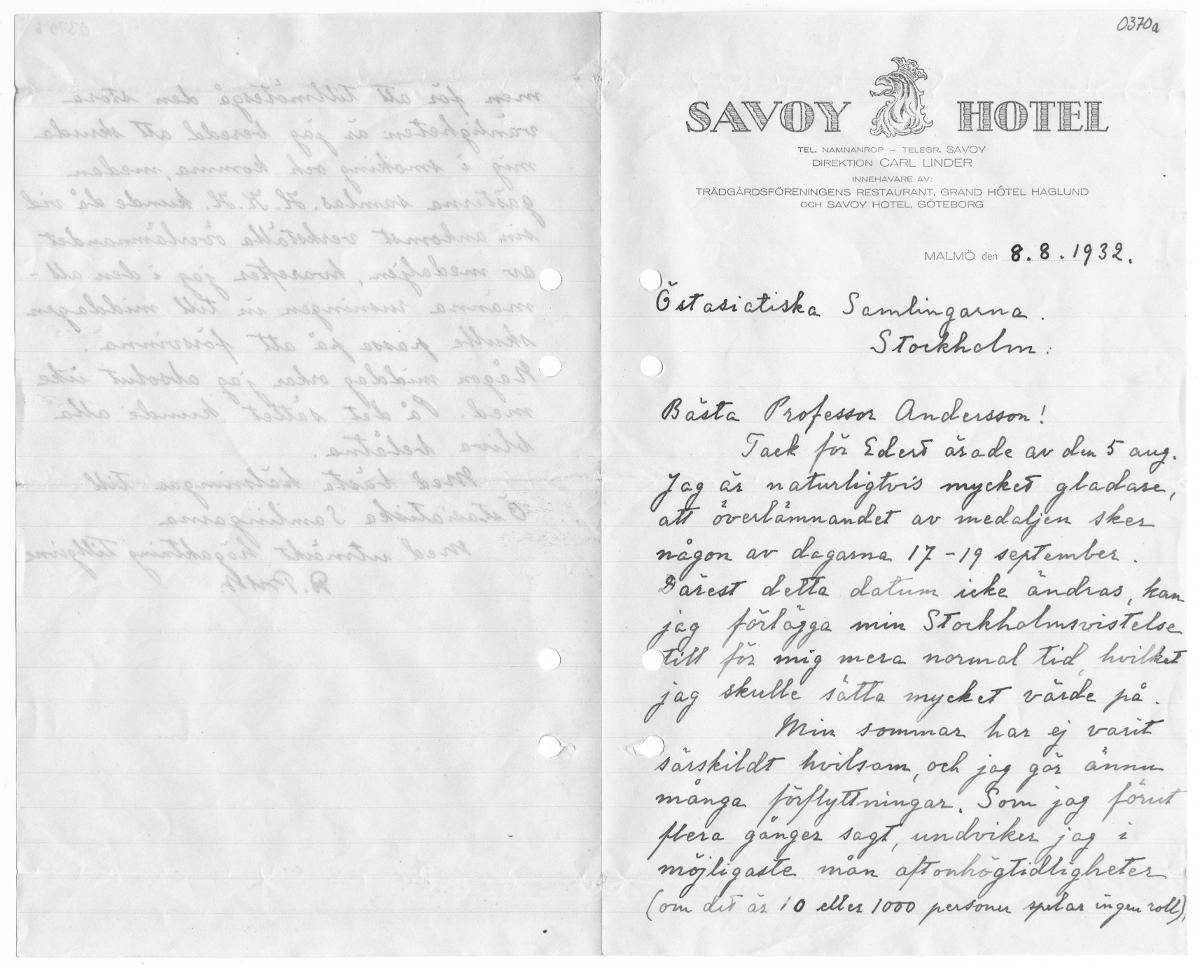 0370a
SAVOY HOTEL
TEL. NAMNANROP – TELEGR. SAVOY
DIREKTION CARL LINDER
INNEHAVARE AV:
TRÄDGÅRDSFÖRENINGENS RESTAURANT, GRAND HÔTEL HAGLUND
OCH SAVOY HOTEL, GÖTEBORG
MALMÖ den 8.8.1932.
Östasiatiska Samlingarna.
Stockholm.
Bästa Professor Andersson!
Tack för Edert ärade av den 5 aug.
Jag är naturligtvis mycket gladare,
att överlämnandet av medaljen sker
någon av dagarna 17–19 september.
Därest detta datum icke ändras, kan
jag förlägga min Stockholmsvistelse
till för mig mera normal tid, hvilket
jag skulle sätta mycket värde på.
Min sommar har ej varit
särskildt hvilsam, och jag gör ännu
många förflyttningar. Som jag förut
flera gånger sagt, undviker jag i
möjligaste mån aftonhögtidligheter
(om det är 10 eller 1000 personer spelar ingen roll),
men för att tillmötesgå den stora
vänligheten är jag beredd att skruda
mig i smoking och komma, medan
gästerna samlas. H. K. H. kunde då vid
sin ankomst verkställa överlämnandet
av medaljen, hvarefter jag i den all-
männa rusningen in till middagen
skulle passa på att försvinna.
Någon middag orkar jag absolut icke
med. På det sättet kunde alla
bliva belåtna.
Med bästa hälsningar till
Östasiatiska Samlingarna
Med utmärkt högaktning tillgivne